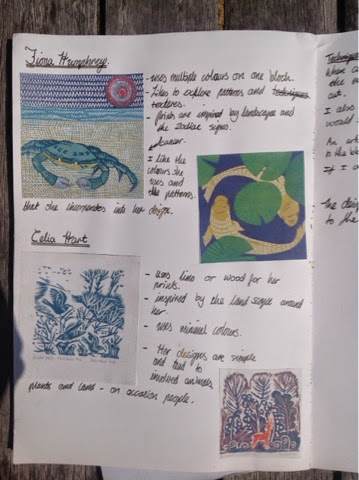 Fiona Humphrey
- uses multiple colours on one block.
- likes to explore patterns and techniques textures.
- prints are inspired by landscapes and the zodiac signs.
cancer.
I like the colours she uses and the patterns.
that she incorporates into her design.
Celia Hart
- uses lino or wood for her prints.
- inspired by the landscape around her.
- uses minimal colours.
- Her designs are simple and tend to involved animals,
plants and land - on occasion people.
Where
the
out.
I also
world
An
to the b
If I
the desi
to the